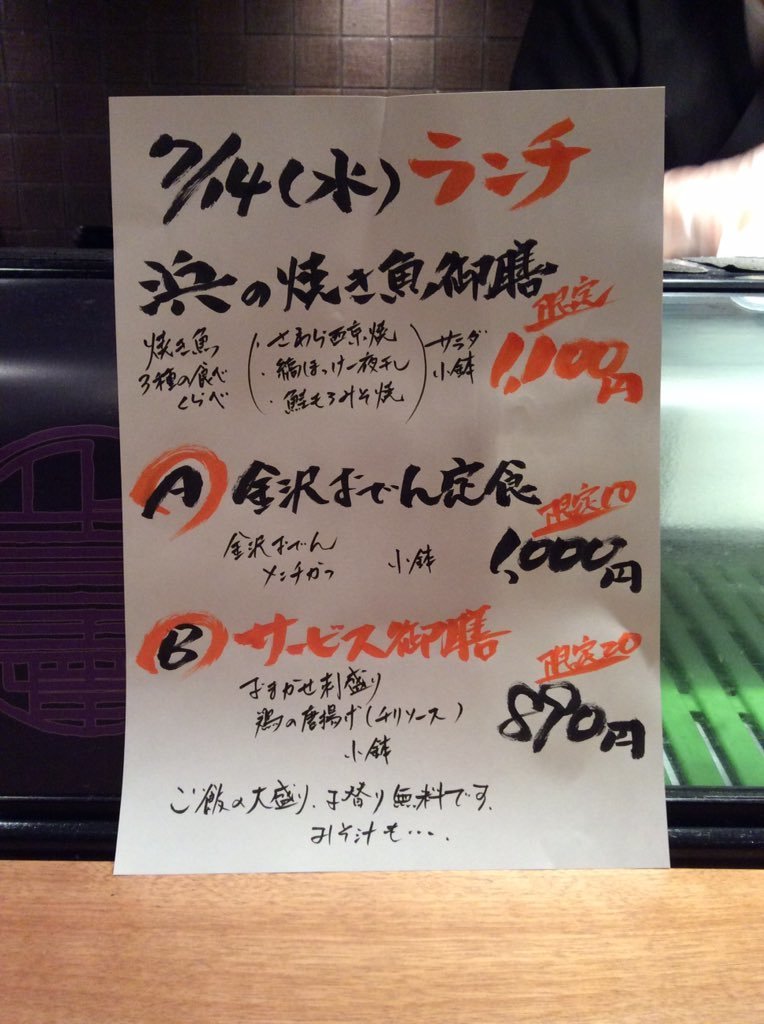 7/14(水)ランチ
浜の焼き魚御膳
限定
1,100円
焼き魚
3種の食べ
くらべ
・さわら西京焼
・縞ほっけ一夜干し
・鮭もろみそ焼
サラダ
小鉢
A 金沢おでん定食
限定10
1,000円
金沢おでん
メンチかつ
小鉢
B サービス御膳
限定20
890円
おまかせ刺盛り
鶏の唐揚げ(チリソース)
小鉢
ご飯の大盛り、お替り無料です。
おみそ汁も・・・.